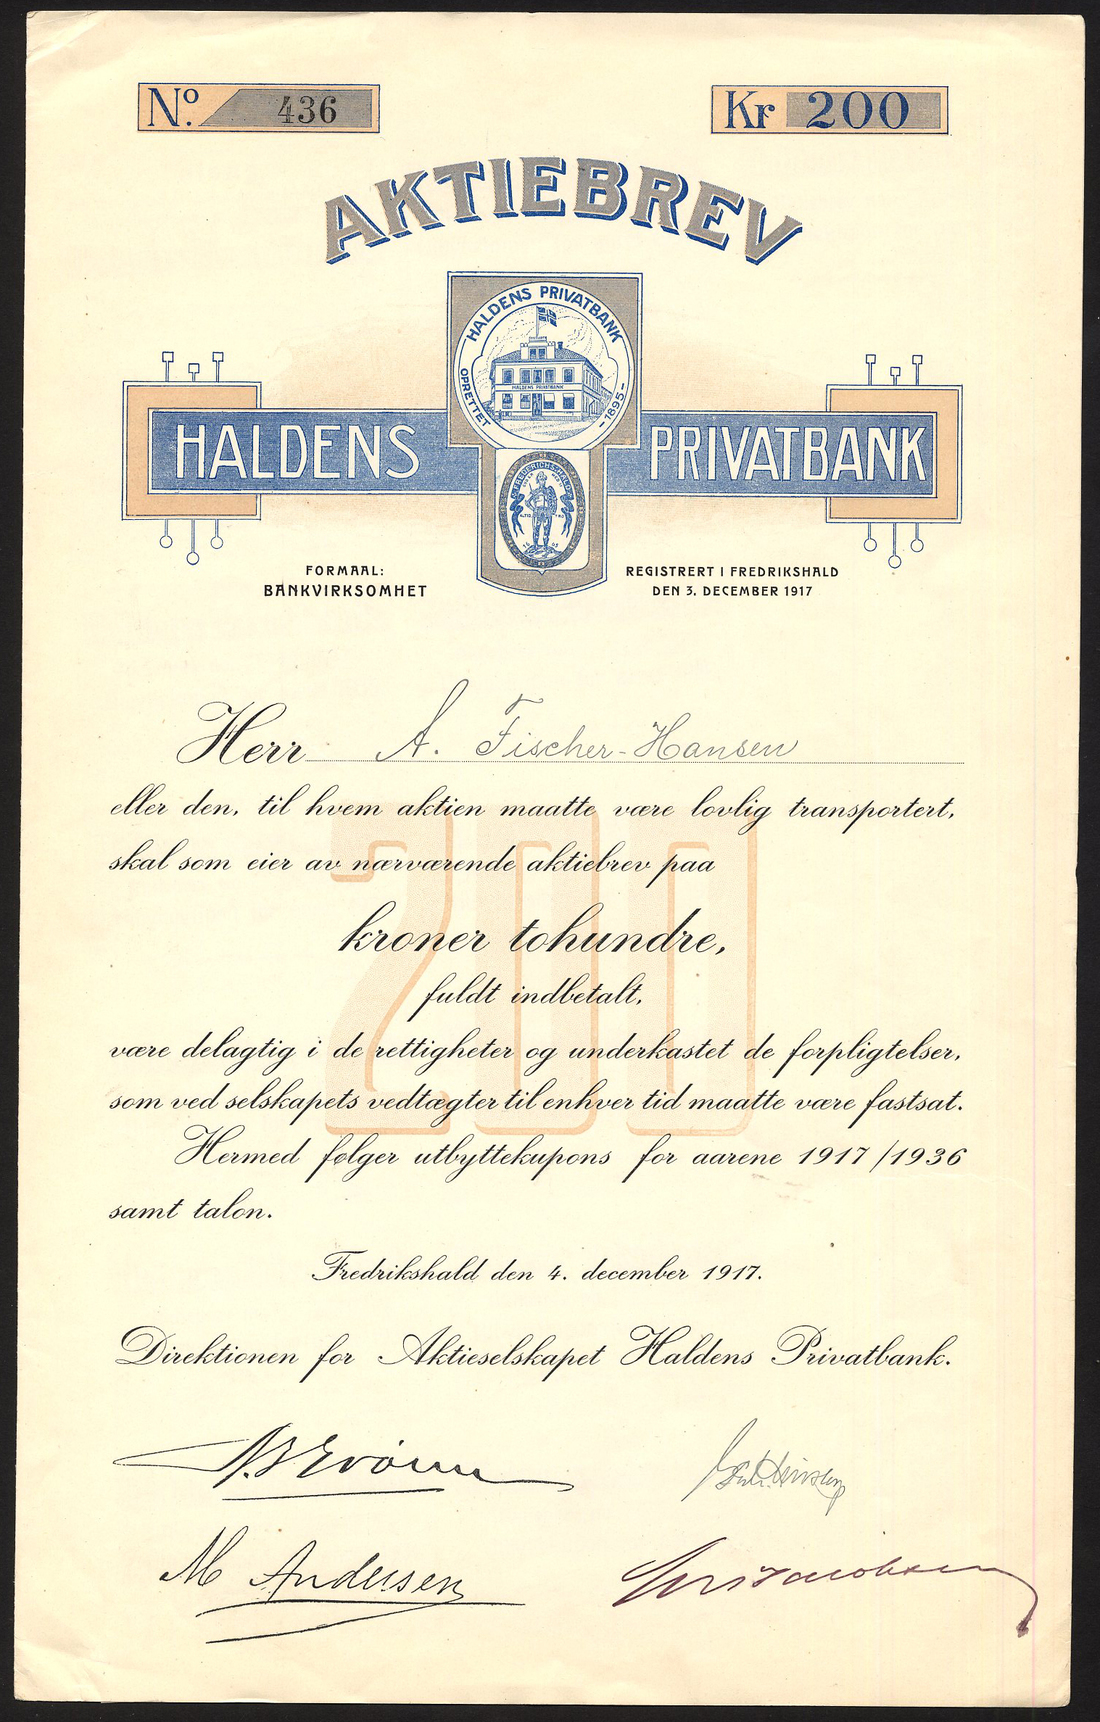 No. 436
Kr 200
AKTIEBREV
HALDENS PRIVATBANK
OPRETTET -1895-
HALDENS PRIVATBANK
HALDENS PRIVATBANK
FORMAAL:
BANKVIRKSOMHET
REGISTRERT I FREDRIKSHALD
DEN 3. DECEMBER 1917
Herr A. Fischer-Hansen
eller den, til hvem aktien maatte være lovlig transportert,
skal som eier av nærværende aktiebrev paa
200
kroner tohundre,
fuldt indbetalt,
være delagtig i de rettigheter og underkastet de forpligtelser,
som ved selskapets vedtægter til enhver tid maatte være fastsat.
Hermed følger utbyttekupons for aarene 1917/1936
samt talon.
Fredrikshald den 4. december 1917.
Direktionen for Aktieselskapet Haldens Privatbank.
M Andersen